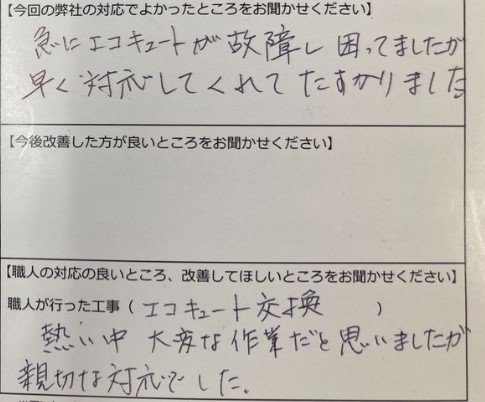 【今回の弊社の対応でよかったところをお聞かせください】
急にエコキュートが故障し困ってましたが
早く対応してくれてたすかりました
【今後改善した方が良いところをお聞かせください】
【職人の対応の良いところ、改善してほしいところをお聞かせください】
職人が行った工事（エコキュート交換）
熱い中 大変な作業だと思いましたが
親切な対応でした。